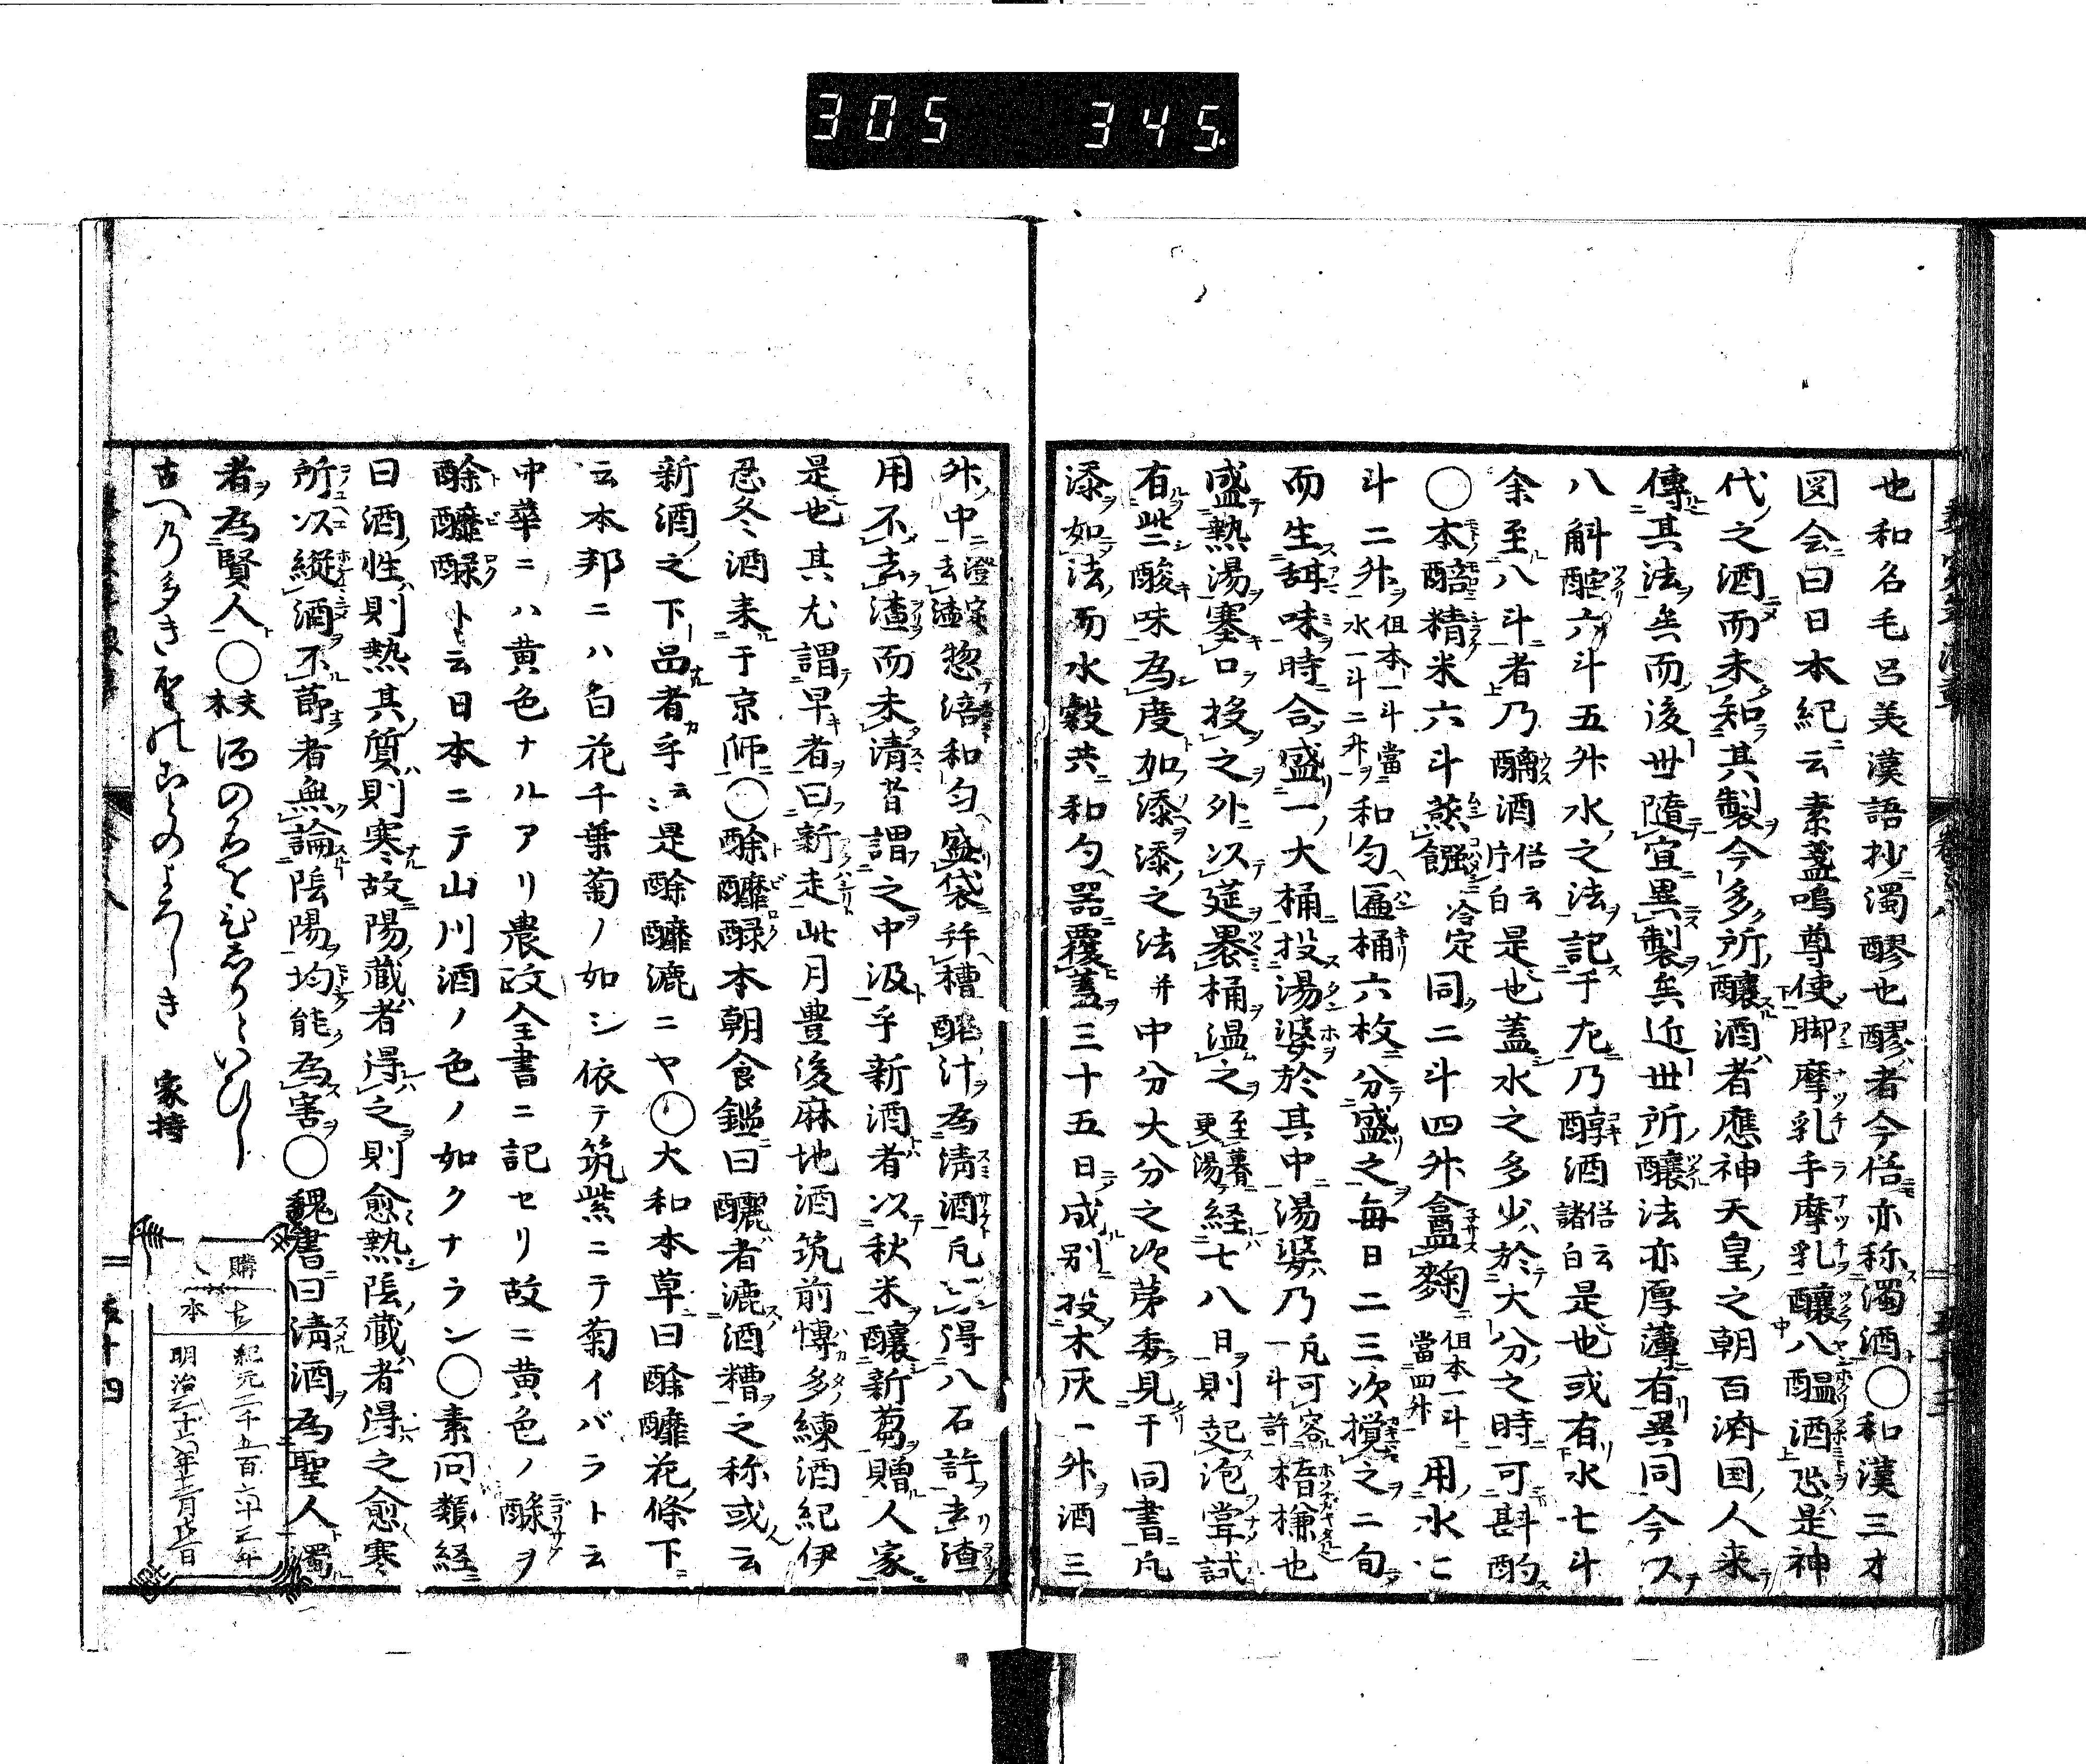 305 345
也和名毛呂美漢語抄濁醪也醪者今俗亦称濁酒〇和漢三才
図会曰日本紀云素盞嗚尊使脚摩乳手摩乳醸八醞酒恐是神
代之酒而未知其製今多所醸酒者應神天皇之朝百濟国人来
傳其法矣而後世隨宜異製矣近世所醸法亦厚薄有異同今
八斛六斗五升水之法記于左乃醇酒俗云諸白是也或有水七斗
余至八斗者乃醨酒俗云片白是也蓋水之多少於大分之時可斟酌
〇本醅精米六斗蒸冷定同二斗四升麹俎本一斗當四升用水七
斗二升俎本一斗當水一斗二升和匀匾桶六枚分盛之毎日二三次攪之二旬
而生甜味時合盛一大桶投湯婆於其中湯婆乃凡可容一斗許楿樣也
盛熱湯塞口投之外以莚褁桶温之至暮更湯経七八日則起泡甞試
有些酸味為度加添添之法并中分大分之次第委見于同書凡
添如法而水穀共和匀器覆蓋三十五日成別投木灰一升酒三
升中澄定去渣惣涪和匀盛袋并糟醡汁為清酒凡得八石許去渣
用不去渣而未清者謂之中汲乎新酒者以秋米醸新蒭贈人家
是也其尤謂早者曰新走此月豊後麻地酒筑前博多練酒紀伊
忍冬酒来于京師〇酴醾醁本朝食鑑曰釃者漉酒糟之称或云
新酒之下品者乎云々是酴醾漉ニヤ〇大和本草曰酴醾花條下
云本邦ニハ白花千葉菊ノ如シ依テ筑紫ニテ菊イバラト云
中華ニハ黄色ナルアリ農政全書ニ記セリ故ニ黄色ノ醁ヲ
酴醾醁ト云日本ニテ山川酒ノ色ノ如クナラン〇素問類経
曰酒性則熱其質則寒故陽蔵者得之則愈熱陰蔵者得之愈寒
所以縦酒不節者無論陰陽均能為害〇魏書曰清酒為聖人濁
者為賢人〇夫木酒の名をひじりといひし
古への多き聖のことのよろしき 家持
購本
紀元二千五百六十三年
明治三十六年